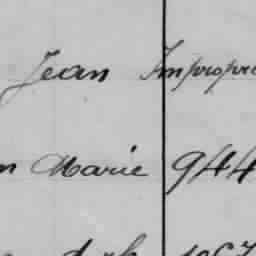 Jean Impropre
n Marie 944